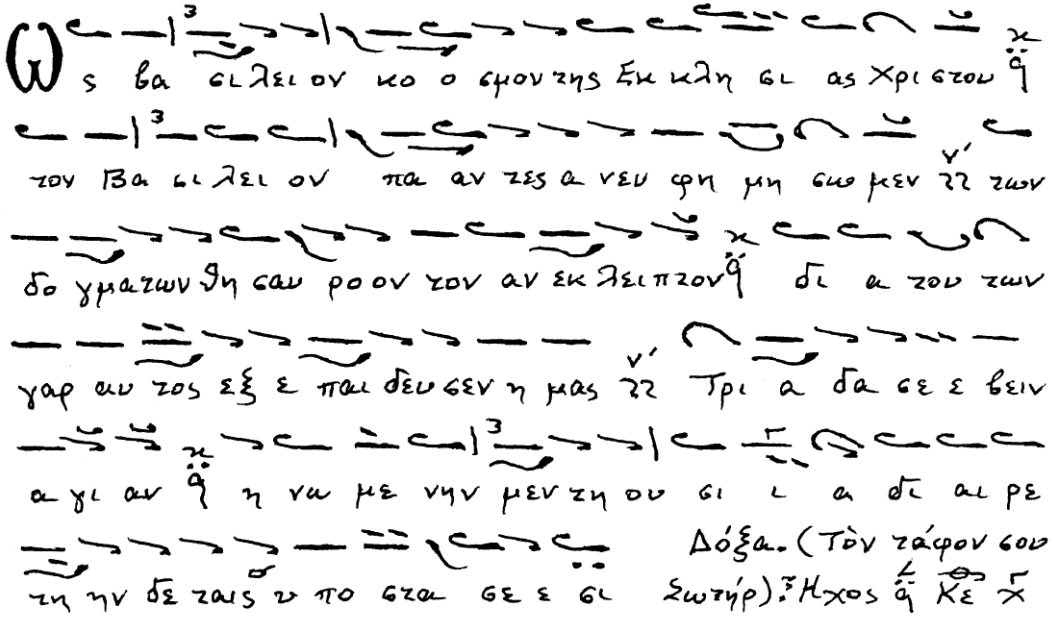 Ως βα σι λει ον κο ο σμον της Εκ κλη σι ας Χρι στου
τον Βα σι λει ον πα αν τες α νευ φη μη σω μεν των
δο γματων θη σαυ ρο ον τον αν εκ λειπτον δι α του των
γαρ αυ τος εξ ε παι δευ σεν η μας Τρι α δα σε ε βειν
α γι αν η νω με νην μεν τη ου σι ι α δι αι ρε
τη ην δε ταις υ πο στα σε ε σι Δόξα. (Τὸν τάφον σου
Σωτήρ). Ηχος